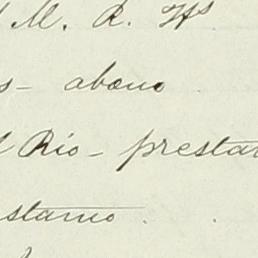 M. R. Hs
s- abono
l Rio - prestar
stamo.